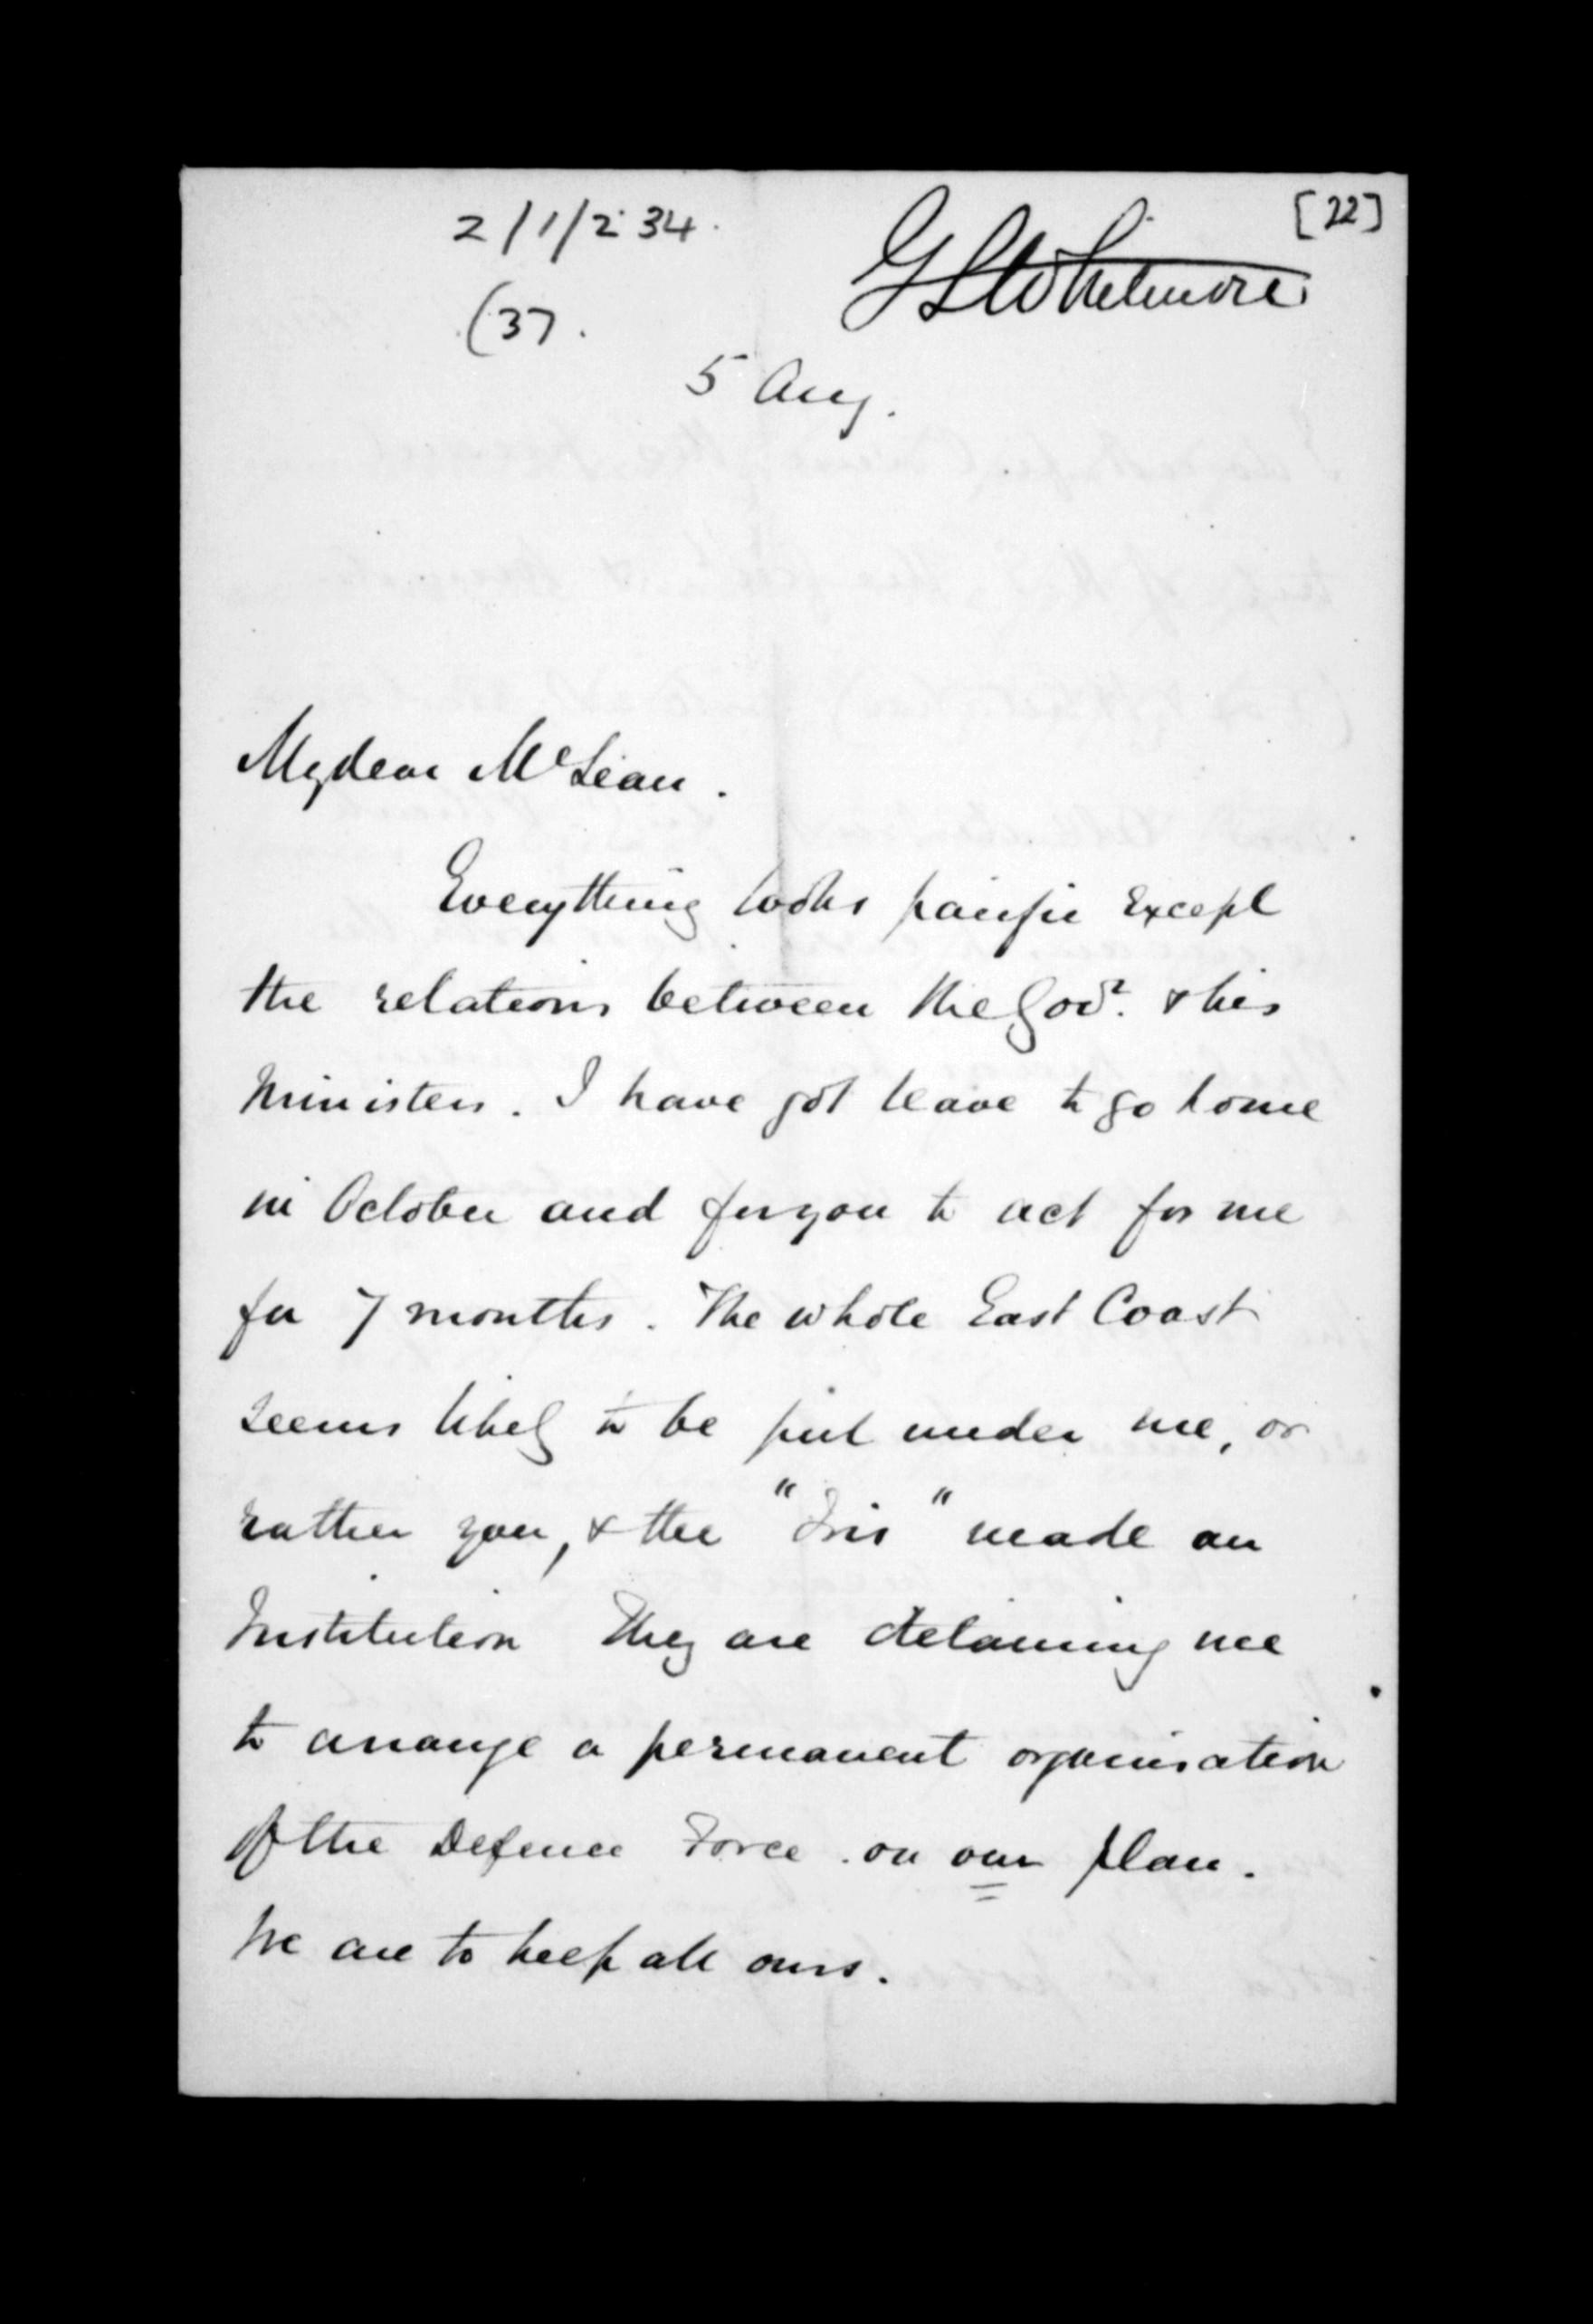 [22]
2/1/2 34.
GS Whitmore
(37.
5 Aug.
My dear McLean.
Everything looks pacific Except
the relations between the Govr. & his
Ministers. I have got leave to go home
in October and for you to act for me
for 7 months. The whole East Coast
seems likely to be put under me, or
rather you, & the "Iris" made an
Institution They are detaining me
to arrange a permanent organisation
of the Defence Force on our plan.
We are to keep all ours.